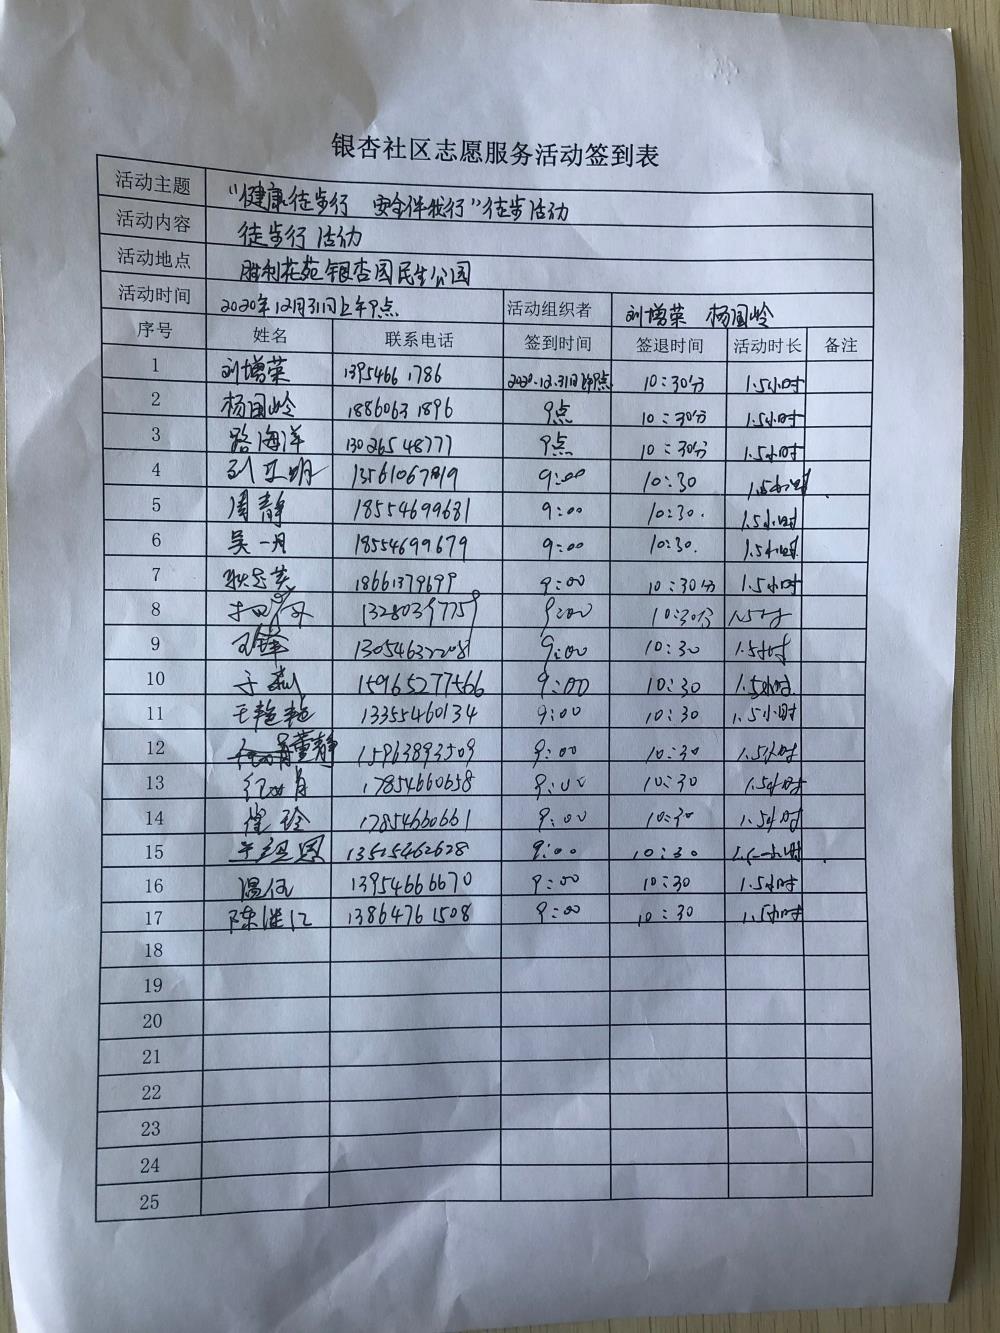 银杏社区志愿服务活动签到表
活动主题 “健康徒步行 安全伴我行”徒步活动
活动内容 徒步行活动
活动地点 胜利花苑银杏园民生公园
活动时间 2020年12月31日上午9点 活动组织者 刘增荣 杨国岭
序号 姓名 联系电话 签到时间 签退时间 活动时长 备注
1 刘增荣 1395466 1786 2020.12.31日上午9点 10:30分 1.5小时
2 杨国岭 1886063 1896 9点 10:30分 1.5小时
3 路海洋 13026548777 9点 10:30分 1.5小时
4 9:00 10:30 1.5小时
5 周静 18554699681 9:00 10:30. 1.5小时
6 吴一丹 18554699679 9:00 10:30. 1.5小时
7 18661379699 9:00 10:30分 1.5小时
8 13280397759 9:00 10:30分 1.5小时
9 王锋 9:00 10:30 1.5小时
10 于 15965277566 9:00 10:30 1.5小时
11 王艳艳 13355460134 9:00 10:30 1.5小时
12 董静 15963893509 9:00 10:30 1.5小时
13 17854660658 9:00 10:30 1.5小时
14 崔玲 17854660661 9:00 10:30 1.5小时
15 13515462628 9:00 10:30 1.5小时
16 温 13954666670 9:00 10:30 1.5小时
17 陈 1386476 1508 9:00 10:30 1.5小时
18
19
20
21
22
23
24
25